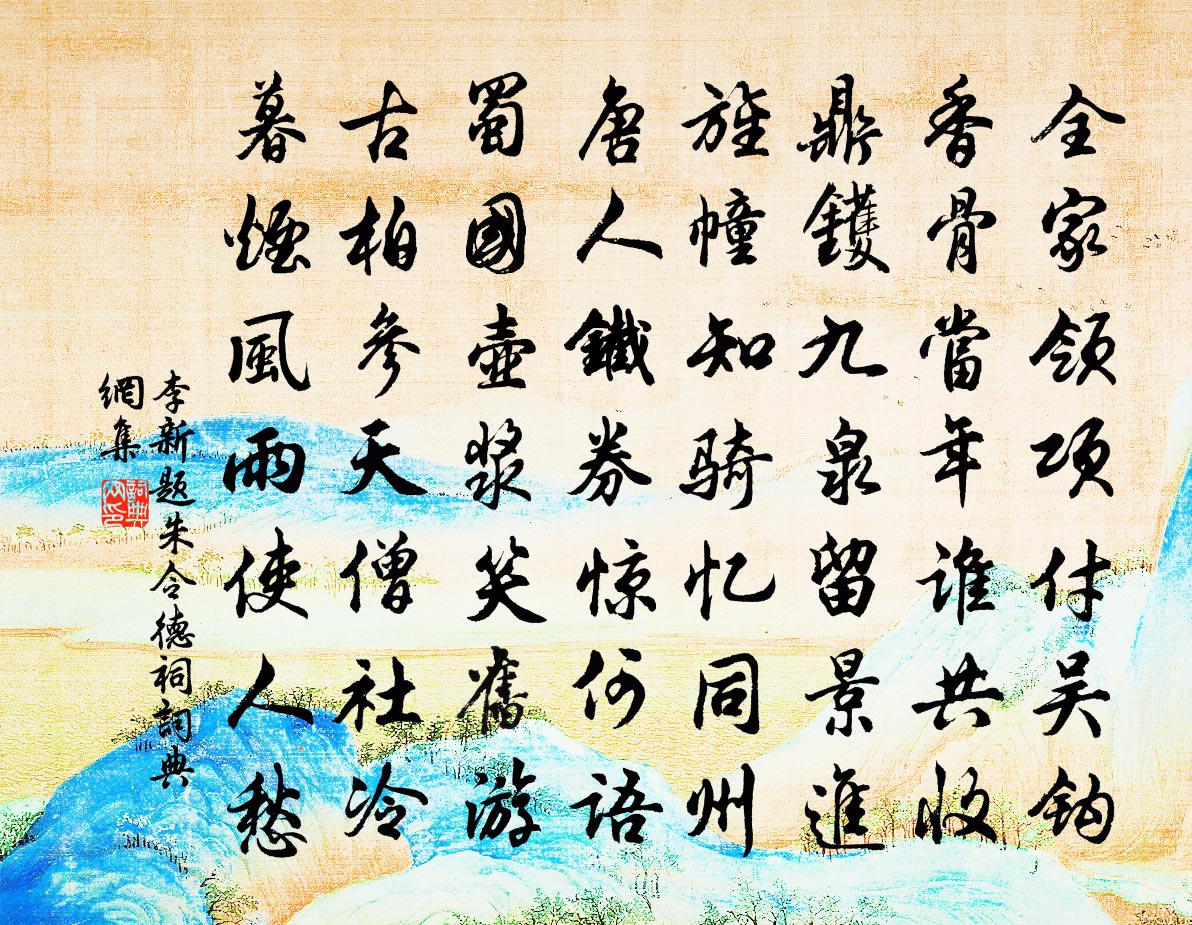 全家领项付吴钩
香骨當年谁共收
鼎鑊九泉留景進
旌幢知骑忆同州
唐人鐵券惊何语
蜀國壺漿笑舊游
古柏参天僧社冷
暮煙風雨使人愁
李新题朱令德祠詞典
網集
詞典